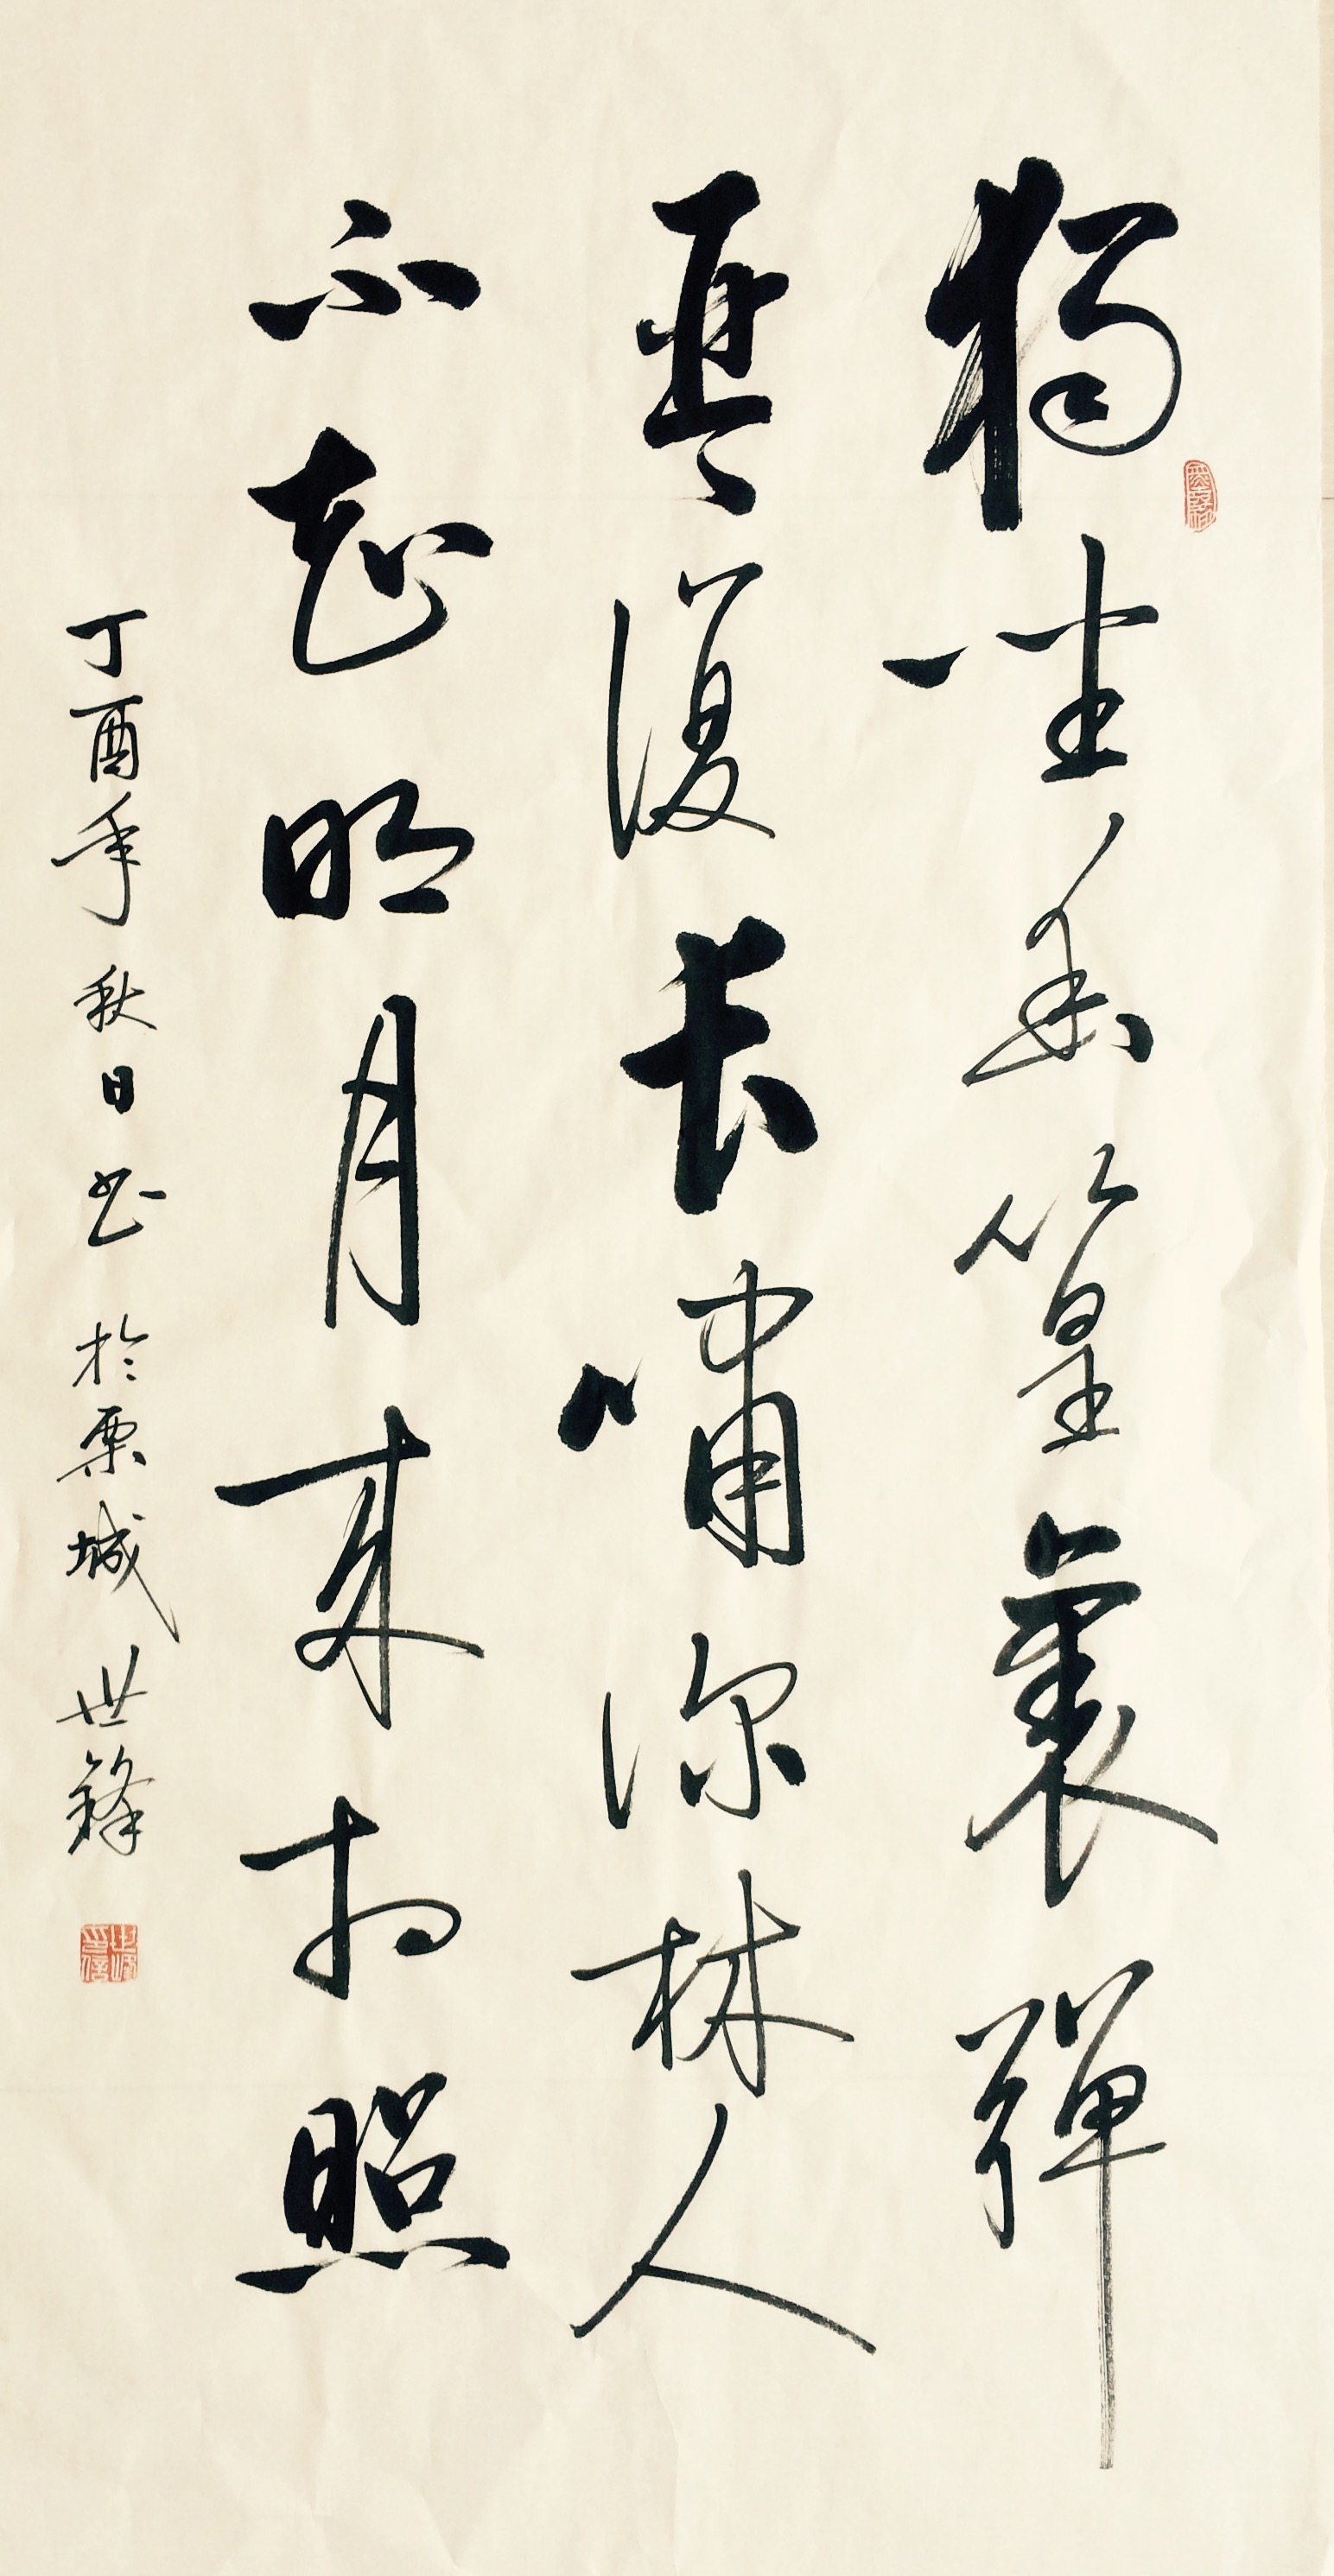 獨坐幽篁裏彈
琴復長嘯深林人
不知明月來相照
丁酉年秋日书於栗城世鋒